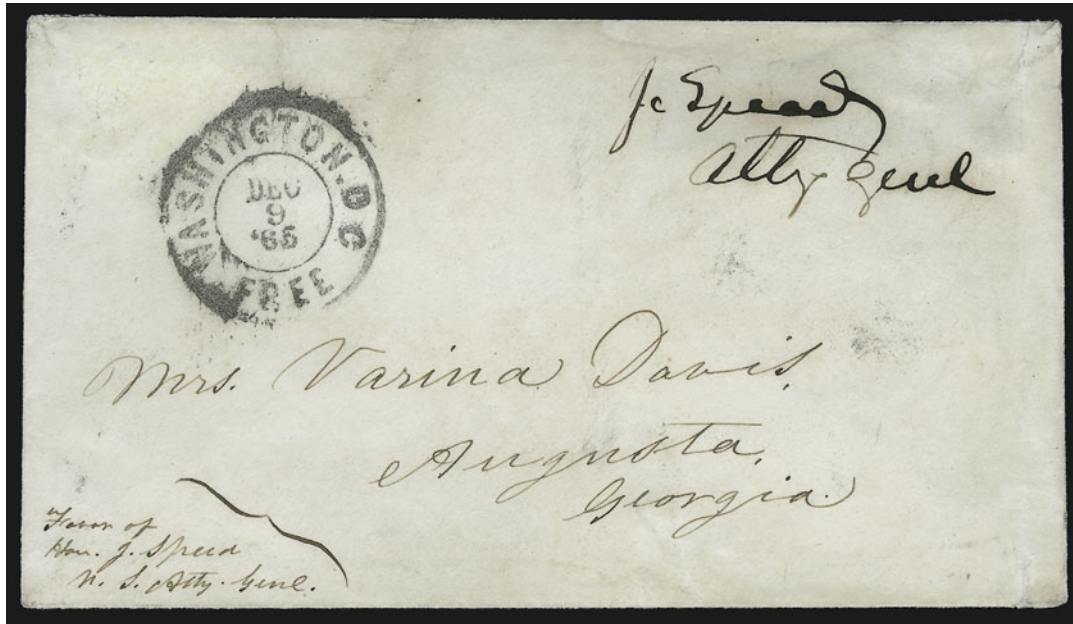 WASHINGTON. D C
DEC
9
'65
FREE
Js Speed
Atty Genl
Mrs. Varina Davis.
Augusta,
Georgia.
Favor of
Hon. J. Speed
U. S. Atty. Genl.